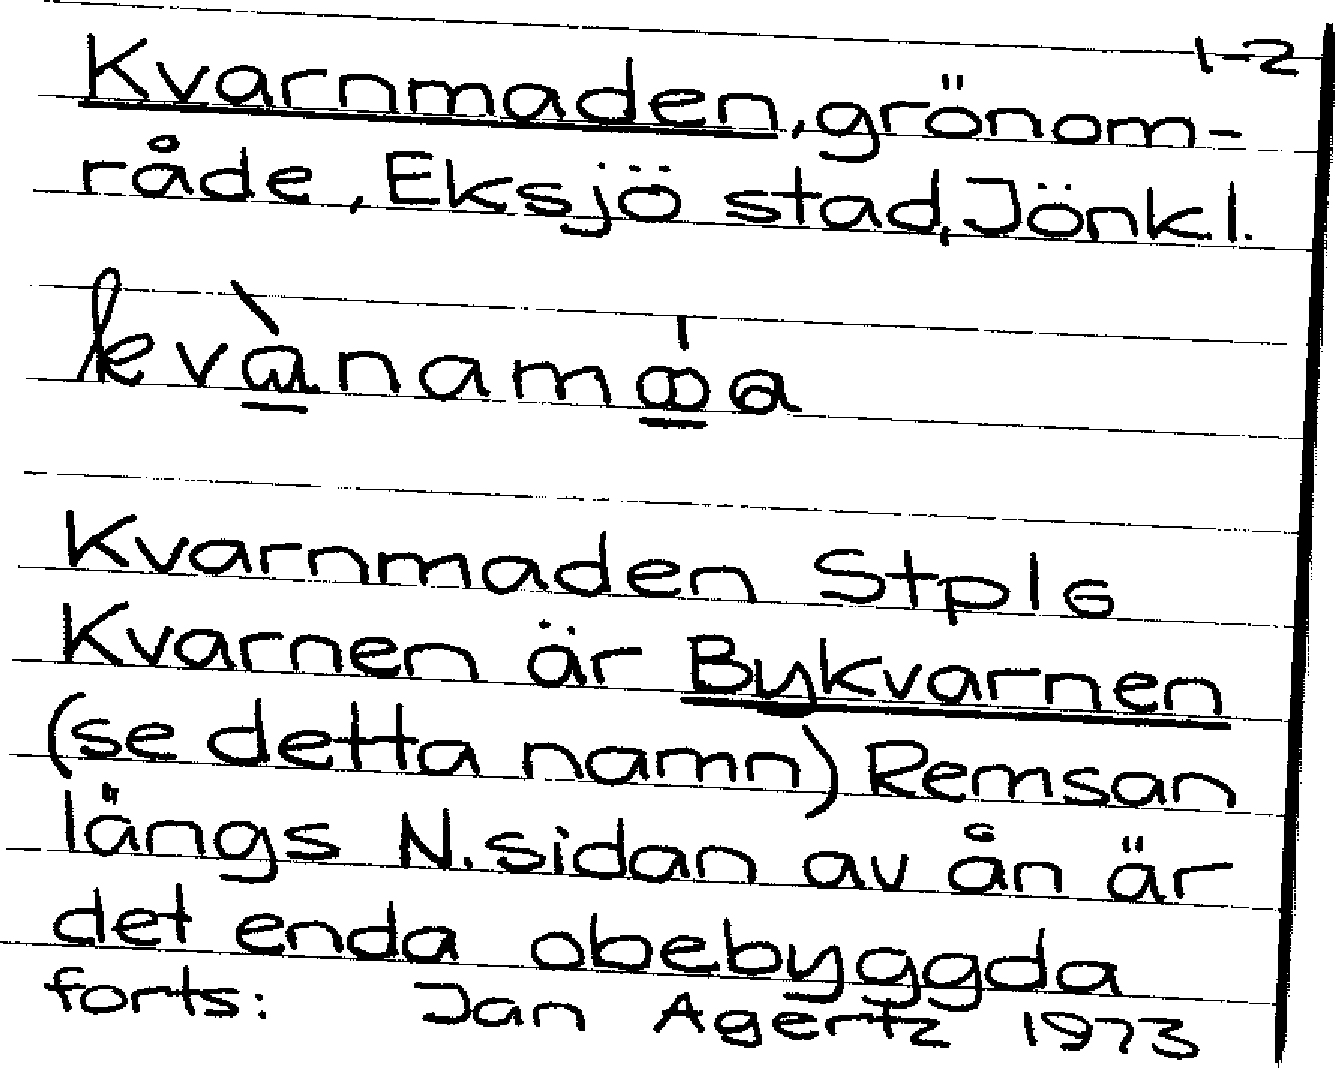 1-2
Kvarnmaden, grönom-
råde, Eksjö stad, Jönkl.
Kvarnmaden Stpl6
Kvarnen är Bykvarnen
(se detta namn) Remsan
längs N. sidan av ån är
det enda obebyggda
forts: Jan Agertz 1973